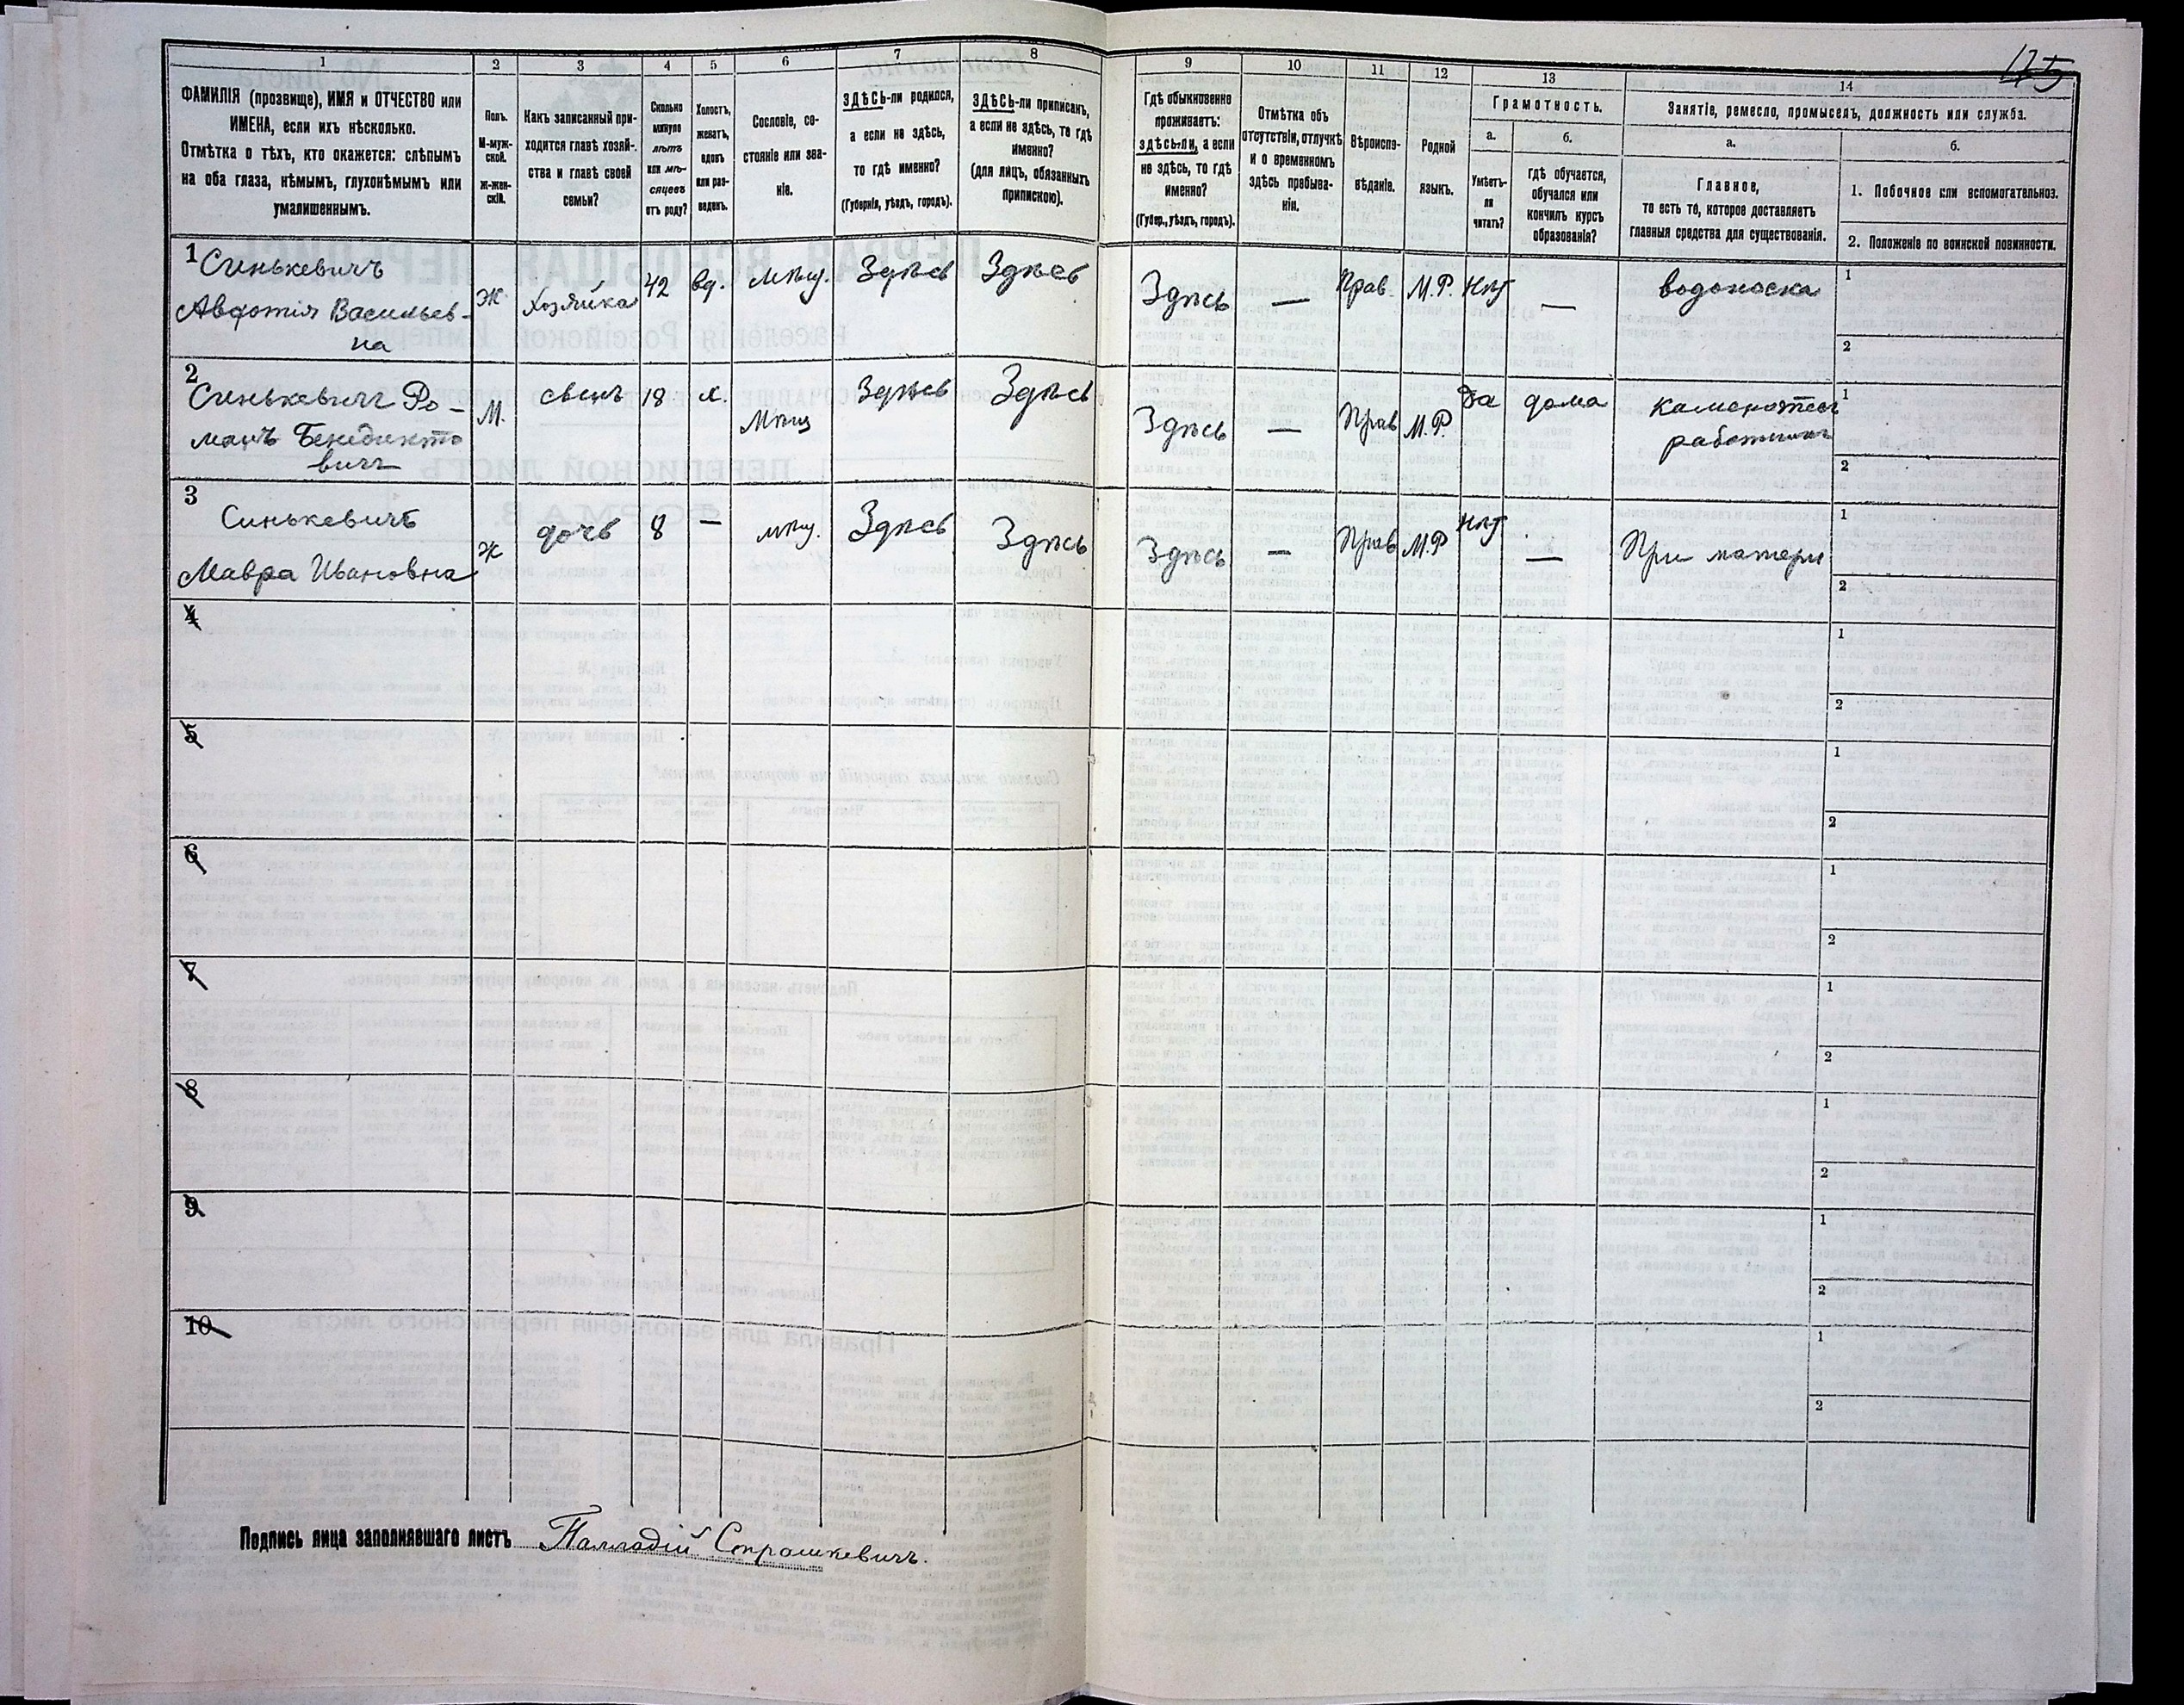 175
1 2 3 4 5 6 7 8 9 10 11 12 13 14
ФАМИЛІЯ (прозвище), ИМЯ и ОТЧЕСТВО или
ИМЕНА, если ихъ нѣсколько.
Отмѣтка о тѣхъ, кто окажется: слѣпымъ
на оба глаза, нѣмымъ, глухонѣмымъ или
умалишеннымъ.
Полъ.
М-муж-
ской.
Ж-жен-
скій.
Какъ записанный при-
ходится главѣ хозяй-
ства и главѣ своей
семьи?
Сколько
минуло
лѣтъ
или мѣ-
сяцевъ
отъ роду?
Холостъ,
женатъ,
вдовъ
или раз-
веденъ.
Сословіе, со-
стояніе или зва-
ніе.
ЗДѢСЬ-ли родился,
а если не здѣсь,
то гдѣ именно?
(Губернія, уѣздъ, городъ).
ЗДѢСЬ-ли приписанъ,
а если не здѣсь, то гдѣ
именно?
(для лицъ, обязанныхъ
припискою).
Гдѣ обыкновенно
проживаетъ:
здѣсь-ли, а если
не здѣсь, то гдѣ
именно?
(Губер., уѣздъ, городъ).
Отмѣтка объ
отсутствіи, отлучкѣ
и о временномъ
здѣсь пребыва-
ніи.
Вѣроиспо-
вѣданіе.
Родной
языкъ.
Грамотность.
а.
Умѣетъ-
ли
читать?
б.
гдѣ обучается,
обучался или
кончилъ курсъ
образованія?
Занятіе, ремесло, промыселъ, должность или служба.
а.
Главное,
то есть то, которое доставляетъ
главныя средства для существованія.
б.
1. Побочное или вспомогательное.
2. Положеніе по воинской повинности.
1 Синькевичъ
Авдотія Васильев-
на
Ж. Хозяйка 42 вд. мѣщ. Здѣсь Здѣсь Здѣсь — Прав. М.Р. Нѣт — водоноска
1
2
2
Синькевичъ Ро-
манъ Бенедикто
вичъ
М. сынъ 18 х. Мѣщ Здѣсь Здѣсь Здѣсь — Прав М.Р. Да дома каменотесъ
работникъ
1
2
3
Синькевичъ
Мавра Ивановна
Ж дочь 8 — мѣщ. Здѣсь Здѣсь Здѣсь — Прав М.Р Нѣт — При матери
1
2
4
1
2
5
1
2
6
1
2
7
1
2
8
1
2
9
1
2
10
1
2
Подпись лица заполнявшаго листъ Палладій Страшкевичъ.